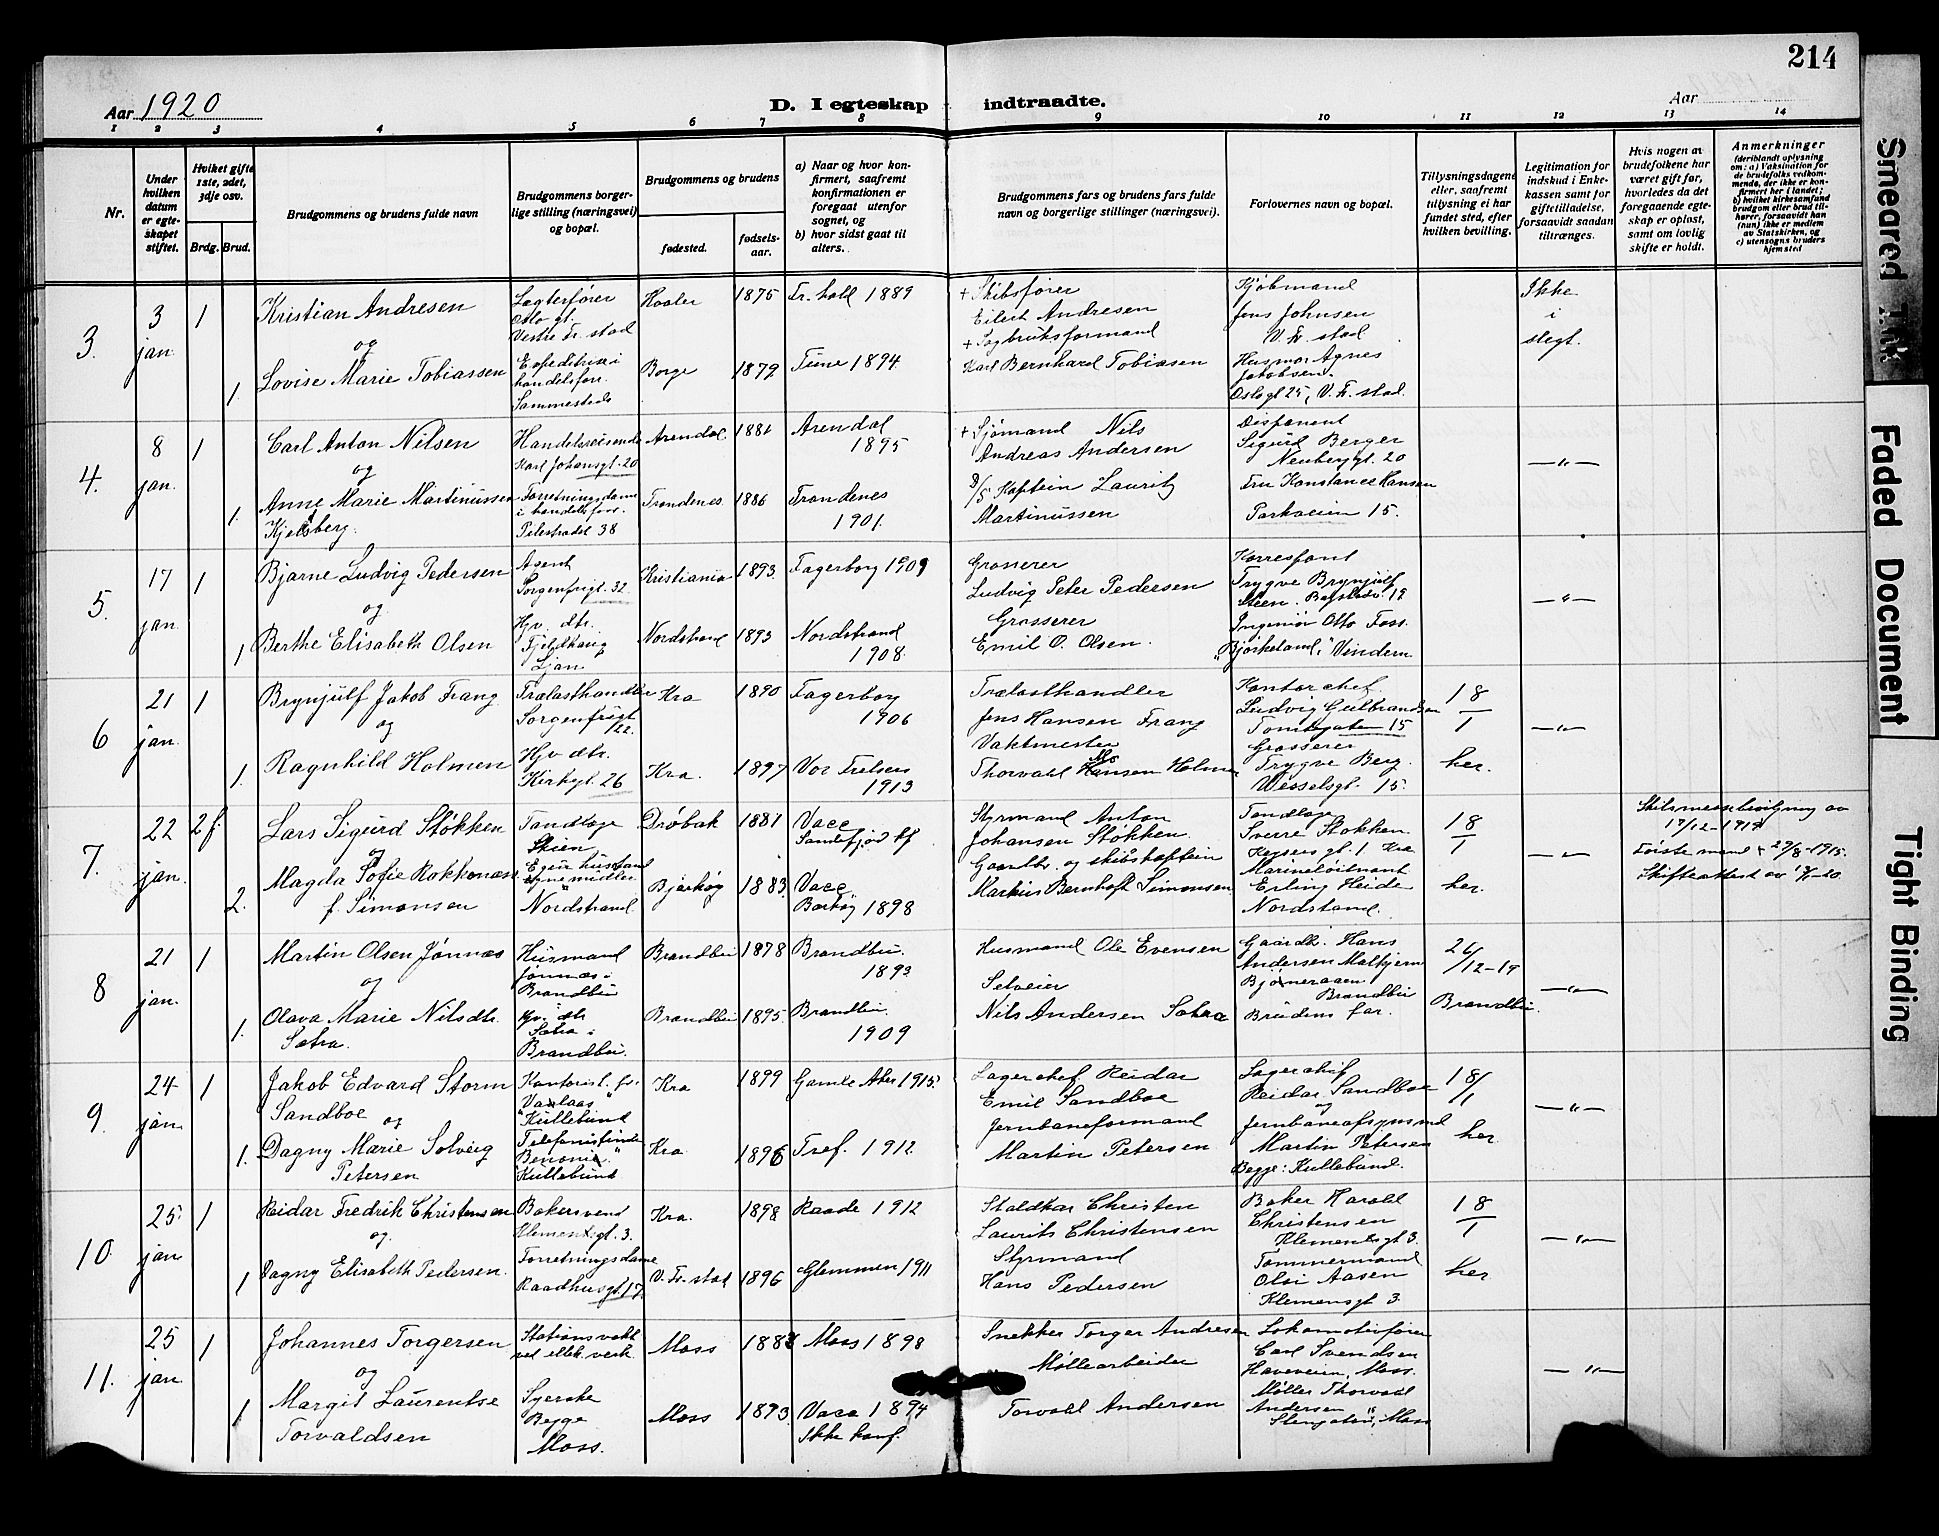 214
Aar 1920
D. I egteskap indtraadte.
Aar
1 2 3 4 5 6 7 8 9 10 11 12 13 14
Nr.
Under hvilken datum er egteskapet stiftet.
Hvilket gifte 1ste, 2det, 3dje osv.
Brdg. Brud.
Brudgommens og brudens fulde navn
Brudgommens borgerlige stilling (næringsvei) og bopæl.
Brudgommens og brudens
fødested.
fødselsaar.
a) Naar og hvor konfirmert, saafremt konfirmationen er foregaat utenfor sognet, og
b) hvor sidst gaat til alters.
Brudgommens fars og brudens fars fulde navn og borgerlige stillinger (næringsvei).
Forlovernes navn og bopæl.
Tillysningsdagene eller, saafremt tillysning ei har fundet sted, efter hvilken bevilling.
Legitimation for indskud i Enkekassen samt for giftetilladelse, forsaavidt saadan tiltrænges.
Hvis nogen av brudefolkene har været gift før, hvorledes da det foregaaende egteskap er opløst, samt om lovlig skifte er holdt.
Anmerkninger
(deriblandt oplysning om: a) Vaksination for de brudefolks vedkommende, der ikke er konfirmert her i landet;
b) hvilket kirkesamfund brudgom eller brud tilhører, forsaavidt han (hun) ikke er medlem av Statskirken, og
c) utensogns bruders hjemsted
3.
3 jan
1
Kristian Andresen
og
Lagterfører
Oslo gt.
Vestre Fr. stad
Hvaler
1875
Tr. hall 1889
+ Skibsfører
Eilert Andresen
Kjøbmand
Jens Johnsen
V. Fr. stad
Ikke
i
slegt.
1.
Lovise Marie Tobiassen
Expeditrise i
handelsforr.
Sammesteds
Borge
1879
Tune 1894
+ Sagbruksformand
Karl Bernhard Tobiasen
Husmor Agnes
Jakobsen.
Oslogt 25, V. Fr. stad.
4.
8 jan.
1
Carl Anton Nilsen
og
Handelsreisende
Karl Johansgt. 20
Arendal
1881
Arendal
1895
+ Sjømand Nils
Andreas Andersen
Disponent
Sigurd Berger
Neuberggt. 20
—"—
1.
Anne Marie Martinussen
Kjelsberg.
Forretningsdame
i handelsforr.
Pilestrædet 38
Trondenes
1886
Trondenes
1901.
Kaptein Lauritz
Martinussen
Fru Konstance Hansen
Parkveien 15.
5.
17 jan.
1
Bjarne Ludvig Pedersen
og
Agent
Sorgenfrigt. 32
Kristiania
1893
Fagerborg 1909
Grosserer
Ludvig Peter Pedersen
Korresponf
Trygve Brynjulf
Steen. Bogstadv. 19
—"—
1
Berthe Elisabeth Olsen
Hjv. dtr.
Fjeldhaug
Ljan
Nordstrand
1893
Nordstrand
1908.
Grosserer
Emil O. Olsen.
Ingeniør Otto Foss.
"Bjørkeland," Vindern
6
21 jan.
1
Brynjulf Jakob Frang
og
Trælasthandler
Sorgenfrigt
22.
Kra
1890
Fagerborg
1906
Trælasthandler
Jens Hansen Frang
Kontorchef
Ludvig Gulbrandsen
Tomtegaten 15
18/1
her.
—"—
1.
Ragnhild Holmen
Hjv dtr.
Kirkegt. 26
Kra.
1897
Vor Frelsers
1913
Vaktmester
Thorvald Hansen Holmen
Grosserer
Trygve Berg.
Wesselsgt. 15.
7.
22 jan.
2 f.
Lars Sigurd Støkken
og
Tandlæge
Skien
Drøbak
1881
Vacc
Sandefjord kf
Styrmand Anton
Johansen Støkken.
Tandlæge
Sverre Støkken
Keysers gt. 1 Kra
18/1
her.
—"—
Skilsmissebevilgning av
17/12-1919
Første mand + 27/8-1915.
Skifteattest av
2.
Magda Sofie Rokkonæs
f. Simonsen
Egen husstand
egne midler
Nordstrand
Bjarkøy
1883
Vacc
Barkøy 1898
Gaardbr. og skibskaptein
Markus Bernhoft Simonsen
Marineløitnant
Erling Heide
Nordstand.
8
21 jan.
1
Martin Olsen Jønnæs
og
Husmand
Jønnæs i
Brandbu
Brandbu
1878
Brandbu.
1893
Husmand Ole Evensen
Gaardb. Hans
Andersen Malkjern
Bjøneraaen
Brandbu
26/12-19
Brandbu.
—"—
1.
Olava Marie Nilsdtr.
Sætra.
Hjv. dtr
Sætra i
Brandbu.
Brandbu
1895.
Brandbu.
1909
Selveier
Nils Andersen Sætra
Brudens far.
9.
24 jan.
1
Jakob Edvard Storm
Sandboe og
Kontorist. fr.
Vaslaas "
"Kullebund
Kra
1899
Gamle Aker 1915.
Lagerchef Reidar
Emil Sandboe
Lagerchef
Reidar Sandboe
og
18/1
her.
—"—
1.
Dagny Marie Solveig
Petersen
Telefonistinde
Benonia "
Kullebund
Kra.
1896
Tref. 1912
Jernbaneformand
Martin Petersen
Jernbaneafspmand
Martin Petersen
Begge: Kullebund.
10
25. jan
1
Reidar Fredrik Christensen
og.
Bakersvend
Klementsgt. 3.
Kra.
1898
Raade 1912
Staldkar Christen
Laurits Christensen
Baker Harald
Christensen
Klementsgt 3.
18/1
her
—"—
1
Dagny Elisabeth Pedersen.
Forretningsdame
Raadhusgt. 17.
V. Fr. stad
1896
Glemmen 1911
Styrmand
Hans Pedersen
Tømmermand
Olai Aasen
Klemensgt 3.
11.
25 jan.
1
Johannes Torgersen
og
Stationsvakt
ved elektr. verk.
Moss
188
Moss 1898
Snekker Torger Andresen
Lokomotivfører
Carl Svendsen
Haveveien, Moss.
—"—
1
Margit Laurentse
Torvaldsen
Syerske
Begge
Moss.
Moss
1893
Vacc 1894
Ikke konf.
Møllearbeider
Torvald Andersen
Møller Thorvald
Andersen
Stengaten, Moss
Smeared Ink
Faded Document
Tight Binding